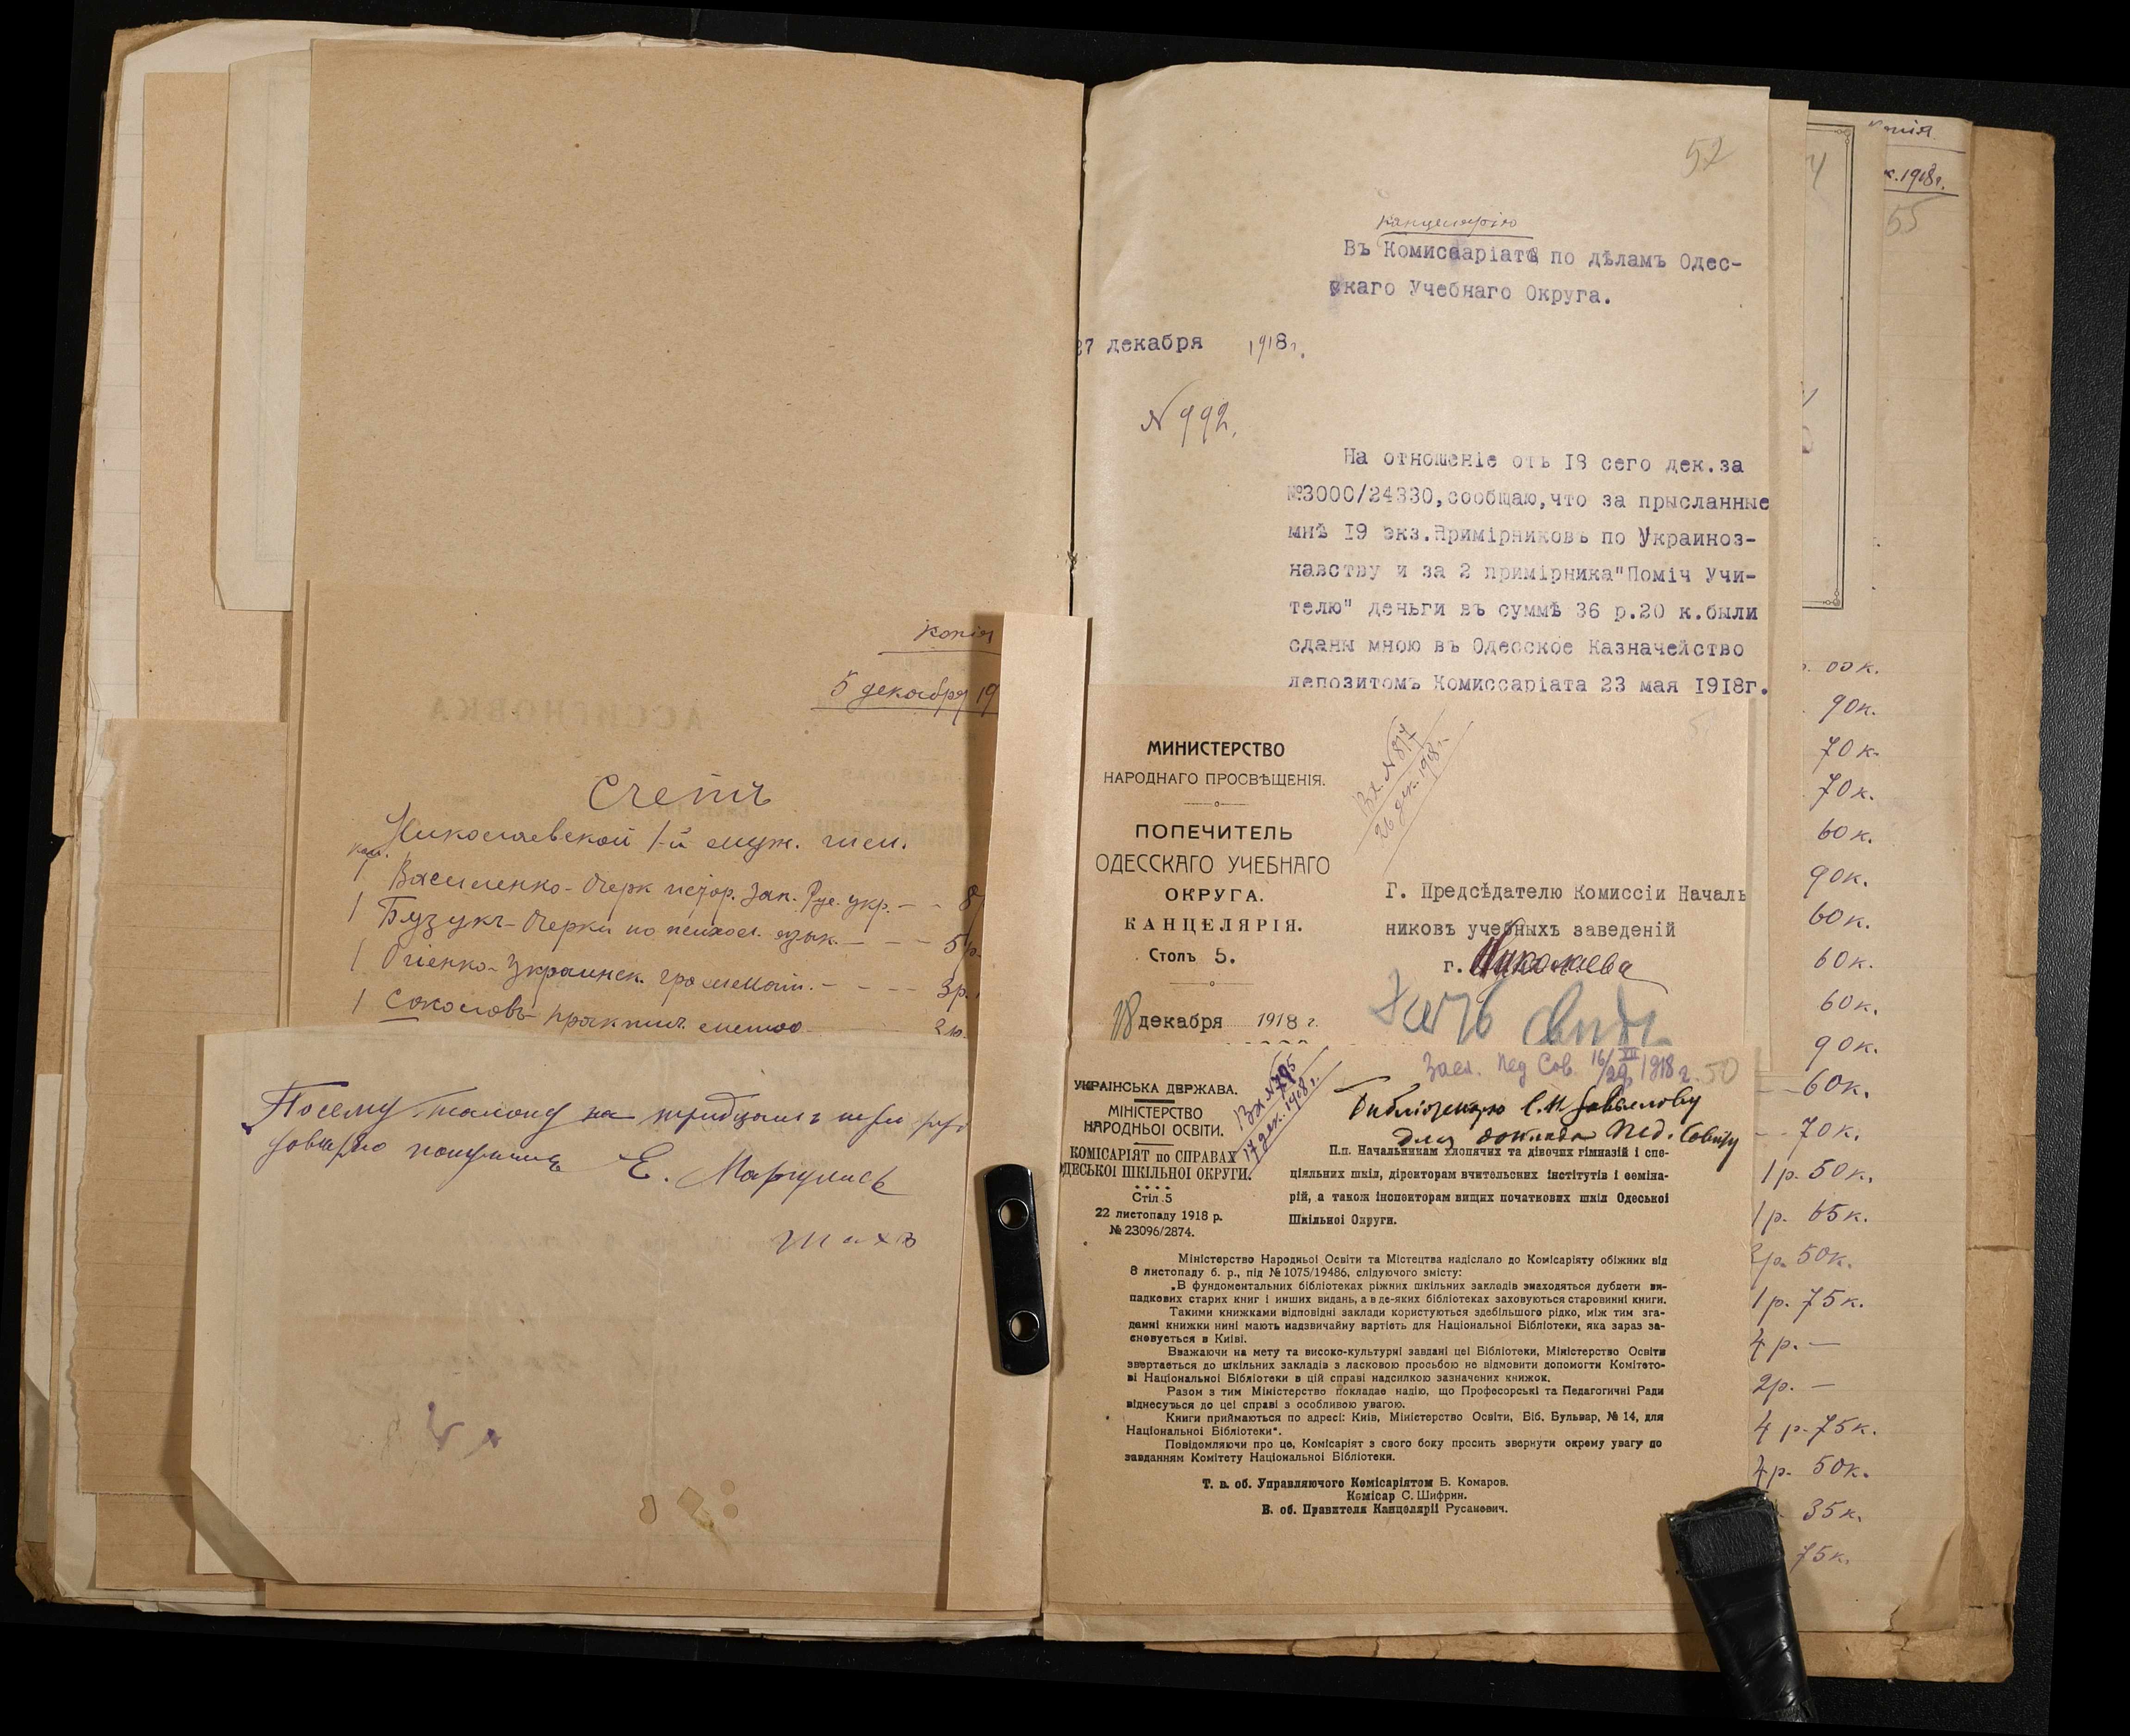 копія
5 декабря 19
Счетъ
Николаевской 1-й муж. гим.
1 Василенко - Очерк истор. Зап. Рус. укр. - - 8
1 Бузукъ - Очерки по психол. язык. - - - 5 р.
1 Огіенко - Украинск. грамmat. - - - 3 р.
1 Соколовъ - практич.
Посему талону на тридцать три
получилъ Е. Маргулисъ
52
канцелярію
Въ Комиссаріатъ по дѣламъ Одес-
скаго Учебнаго Округа.
27 декабря 1918 г.
№ 992.
На отношеніе отъ 18 сего дек.за
№3000/24330,сообщаю,что за прысланные
мнѣ 19 экз.Примірниковъ по Украиноз-
навству и за 2 примірника"Поміч Учи-
телю" деньги въ суммѣ 36 р.20 к.были
сданы мною въ Одесское Казначейство
депозитомъ Комиссаріата 23 мая 1918г.
МИНИСТЕРСТВО
НАРОДНАГО ПРОСВѢЩЕНІЯ.
ПОПЕЧИТЕЛЬ
ОДЕССКАГО УЧЕБНАГО
ОКРУГА.
КАНЦЕЛЯРІЯ.
Столъ 5.
18 декабря 1918 г.
Вх. № 817
26 дек. 1918 г.
Г. Предсѣдателю Комиссіи Началь
никовъ учебныхъ заведеній
г. Николаева
Засл. Пед Сов. 16/29 XII 1918 г. 50
Вх № 795
17 дек. 1918 г.
Библіотекарю
для доклада Пед. Совѣту
УКРАІНСЬКА ДЕРЖАВА.
МІНІСТЕРСТВО
НАРОДНЬОІ ОСВІТИ.
КОМІСАРІЯТ по СПРАВАХ
ОДЕСЬКОІ ШКІЛЬНОІ ОКРУГИ.
Стіл 5
22 листопаду 1918 р.
№ 23096/2874.
П.п. Начальникам хлопячих та дівочих гімназій і спе-
ціяльних шкіл, діректорам вчительских інститутів і семіна-
рій, а також інспекторам вищих початкових шкіл Одеської
Шкільноі Округи.
Міністерство Народньоі Освіти та Містецтва надіслало до Комісаріяту обіжник від
8 листопаду б. р., під № 1075/19486, слідуючого змісту:
„В фундоментальних бібліотеках ріжних шкільних закладів знаходяться дублети ви-
падкових старих книг і инших видань, а в де-яких бібліотеках заховуються старовинні книги.
Такими книжками відповідні заклади користуються здебільшого рідко, між тим зга-
данні книжки нині мають надзвичайну вартість для Національноі Бібліотеки, яка зараз за-
сновується в Киіві.
Вважаючи на мету та високо-культурні завдані цеі Бібліотеки, Міністерство Освіти
звертається до шкільних закладів з ласковою просьбою не відмовити допомогти Комітето-
ві Національноі Бібліотеки в цій справі надсилкою зазначених книжок.
Разом з тим Міністерство покладає надію, що Професорські та Педагогичні Ради
віднесуться до цеі справі з особливою увагою.
Книги приймаються по адресі: Киів, Міністерство Освіти, Біб. Бульвар, № 14, для
Національноі Бібліотеки".
Повідомляючи про це, Комісаріят з свого боку просить звернути окрему увагу до
завданням Комітету Національноі Бібліотеки.
Т. в. об. Управляючого Комісаріятом Б. Комаров.
Комісар С. Шифрин.
В. об. Правителя Канцеляріі Русанович.
копія
к. 1918 г.
55
00 к.
90 к.
70 к.
70 к.
60 к.
90 к.
60 к.
60 к.
60 к.
90 к.
60 к.
70 к.
1 р. 50 к.
1 р. 65 к.
2 р. 50 к.
1 р. 75 к.
4 р. —
2 р. —
4 р. 75 к.
4 р. 50 к.
35 к.
75 к.